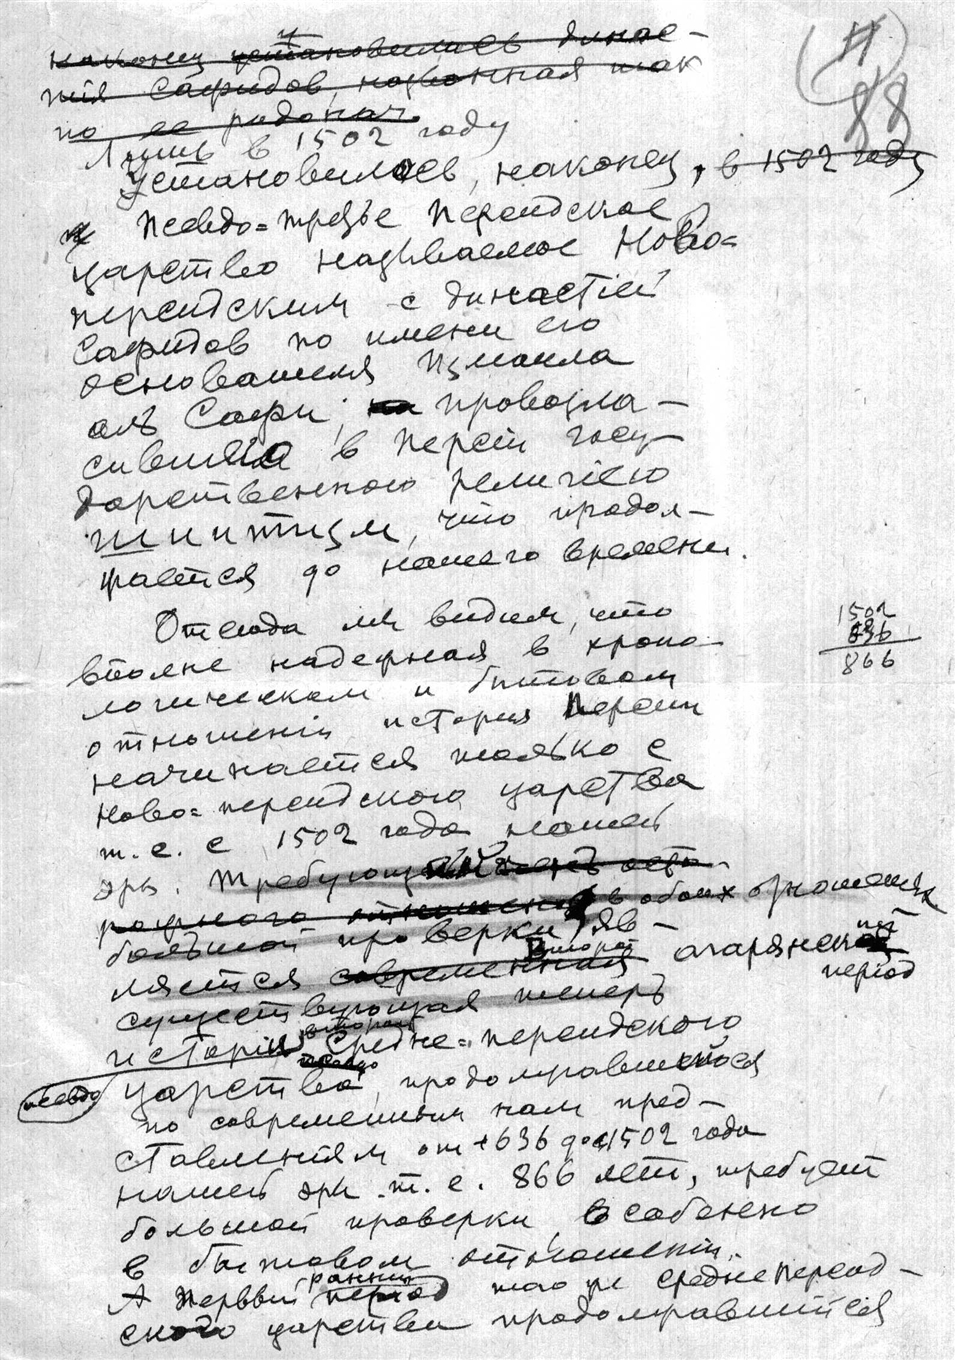 88
наконец установилась динас-
тия Сафидов, названная так
по ее родонач.
Лишь в 1502 году
установилось, наконец, в 1502 году
псевдо-третье персидское
царство называемое Ново-
персидским с династіей
Сафидов по имени его
основателя Измаила
аль Сафи, провозгла-
сившаго в Персіи госу-
дарственною религіею
шиитизм, что продол-
жается до нашего времени.
Отсюда мы видим, что
вполне надежная в хроно-
логическом и бытовом
отношеніи история Персии
начинается только с
Ново-персидского царства
т. е. с 1502 года нашей
эры. Требующей
в обоих отношениях
большой проверки, яв-
ляется современная второй агарянский
период
существующая теперь
исторіи Средне-персидского
псевдо царства, продолжавшегося
по современным нам пред-
ставлениям от +636 до 1502 года
нашей эры т. е. 866 лет, требует
большой проверки, особенно
в бытовом отношеніи.
А первый ранний период того же среднеперсид-
ского царства продолжавшийся
1502
636
866